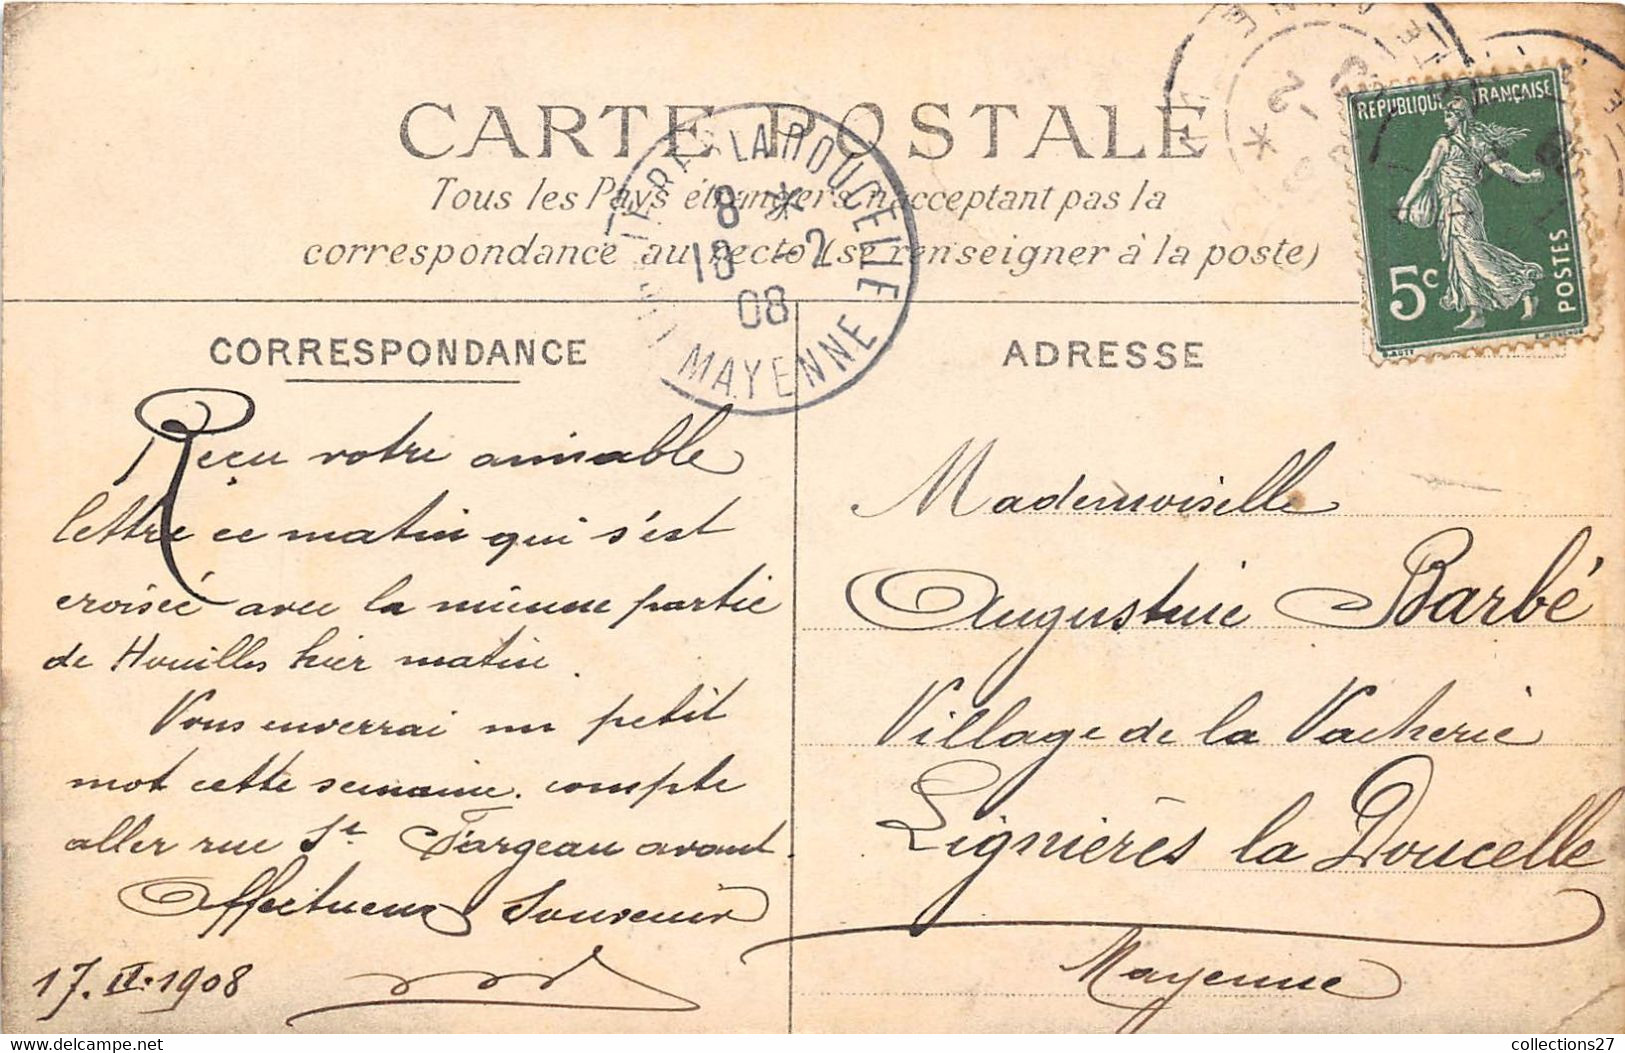 CARTE POSTALE
Tous les Pays étrangers n'acceptent pas la
correspondance au recto (se renseigner à la poste)
LA DOUCELLE
8
18 -2
08
MAYENNE
REPUBLIQUE FRANÇAISE
5c
POSTES
CORRESPONDANCE
Reçu votre aimable
lettre ce matin qui s'est
croisée avec la mienne partie
de Houilles hier matin.
Vous enverrai un petit
mot cette semaine. compte
aller rue St Fargeau avant.
Affectueux Souvenir
17.II.1908
ADRESSE
Mademoiselle
Augustine Barbé
Village de la Vacherie
Lignières la Doucelle
Mayenne
collections27